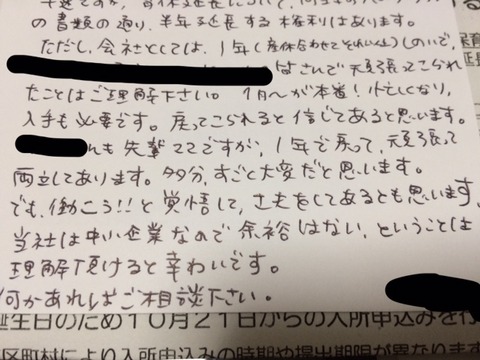 の書類の通り、半年延長する権利はあります。
ただし、会社としては、1年(産休合わせてそれ以上)のいで、
はさんで頑張ってこられ
たことはご理解下さい。1月〜が本番！忙しくなり、
人手も必要です。戻ってこられると信じてあると思います。
んも先輩ママですが、1年で戻って、頑張って
両立してあります。多分、すごく大変だと思います。
でも、働こう!!と覚悟して、工夫をしてあるとも思います。
当社は中小企業なので余裕はない、ということは
理解頂けると幸わいです。
何かあればご相談下さい。
誕生日のため10月21日からの入所申込みを行
区町村により入所申込みの時期や提出期限が異なります